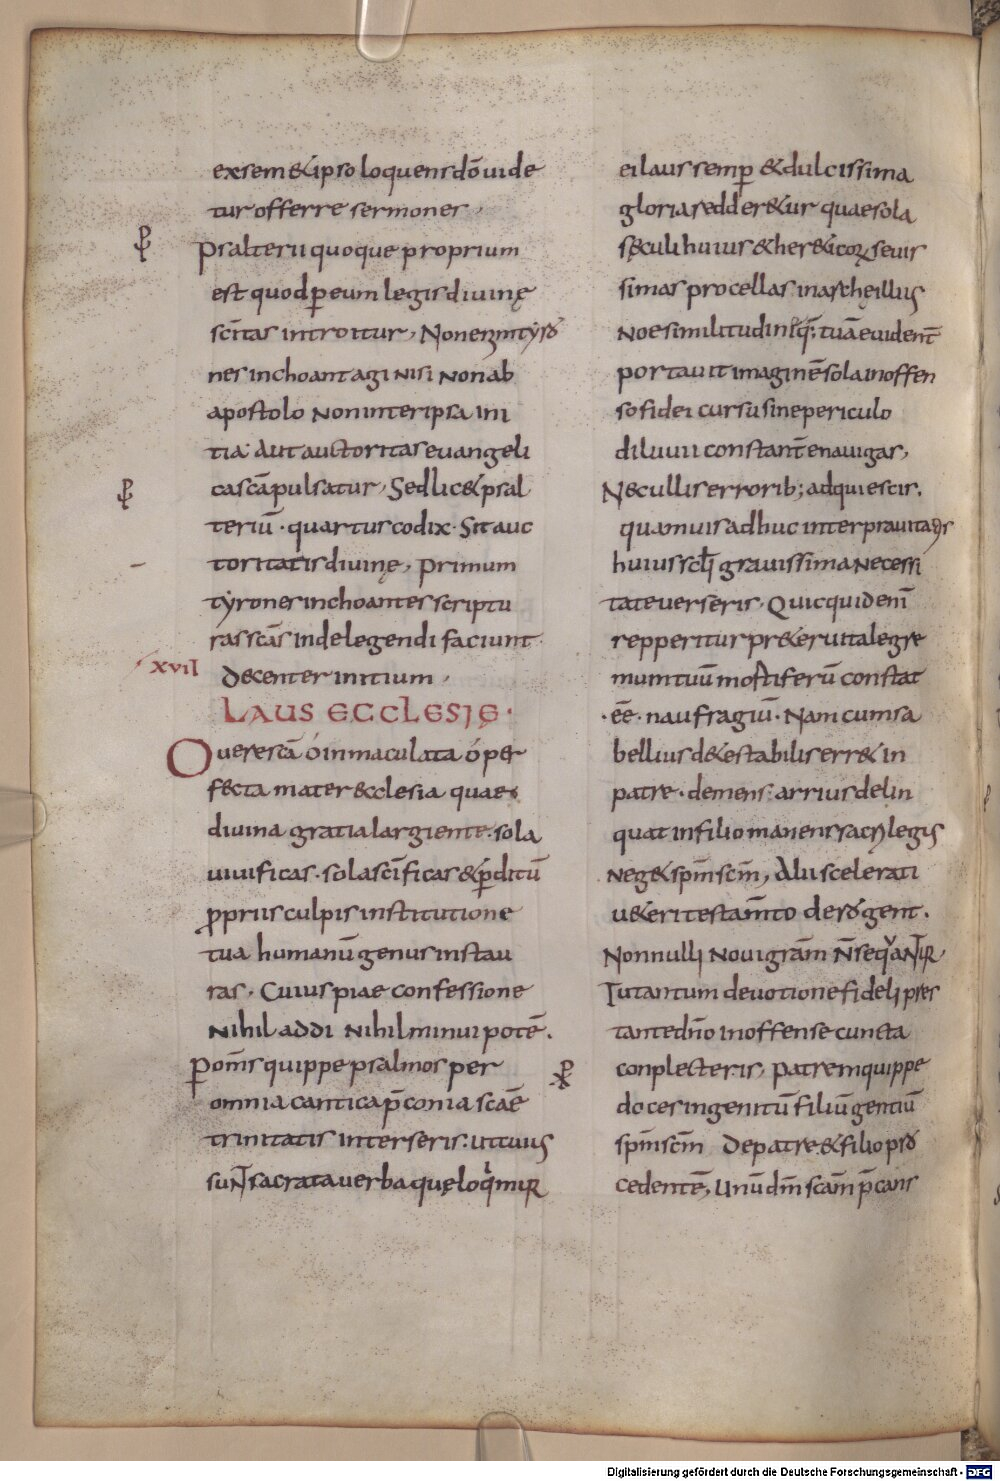 exsem&ipso loquens dō uide
tur offerre sermones,
Psalterii quoque proprium
est quod p eum legis diuinę
scītas introitur, Non enim tyro
nes inchoant agi nisi non ab
apostolo non inter ipsa ini
tia aut auctoritas euangeli
ca scā pulsatur, Sed lic& psal
teriū · quartus codix · Sit auc
toritatis diuinę, primum
tyrones inchoantes scriptu
ras scās inde legendi faciunt
xvii
decenter initium,
LAUS ECCLESIĘ·
O uere scā ó inmaculata ó per
fecta mater ecclesia quae
diuina gratia largiente · sola
uiuificas · sola scīficas & pditū
propriis culpis institutione
tua humanū genus instau
ras, Cuius piae confessione
nihil addi nihil minui potē.
P omīs quippe psalmos per
omnia cantica pconia scāe
trinitatis interseris: ut cuius
sunt sacrata uerba quę loquimur
ei laus semp & dulcissima
gloria redder&ur quae sola
sęculi huius & her&icorum seuis
simas procellas in archę illius
Noe similitudine quę tuā euidenī
portauit imaginē sola inoffen
so fidei cursu sine periculo
diluuii constanī enauigas,
Nec ullis errorib; adquiescis.
quamuis adhuc inter prauitates
huius scli grauissima necessi
tate uerseris, Quicquid enī
repperitur pr&er uitale gre
mium tuū mortiferū constat
· eē · naufragiū · Nam cum sa
bellius d&estabilis err& in
patre · demens arrius delin
quat in filio manens sacrilegus
neg& spm scm, Alii scelerati
u&eri testamto derogent.
Nonnulli noui gram n̄ sequantur
Tu tantum deuotione fideli pres
tante dno inoffense cuncta
conplecteris, patrem quippe
doces ingenitū filiū genitū
spm scm de patre & filio pro
cedentē, Unū dm scam pcans
Digitalisierung gefördert durch die Deutsche Forschungsgemeinschaft - DFG